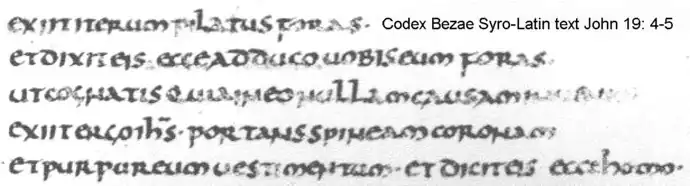 exiit iterum pilatus foras · Codex Bezae Syro-Latin text John 19: 4-5
et dixit eis · ecce adduco uobis eum foras ·
ut cognatis quia in eo nullam causam
exiit ergo ih̅s̅ · portans spineam coronam
et purpureum uestimentum · et dicit eis ecce homo ·